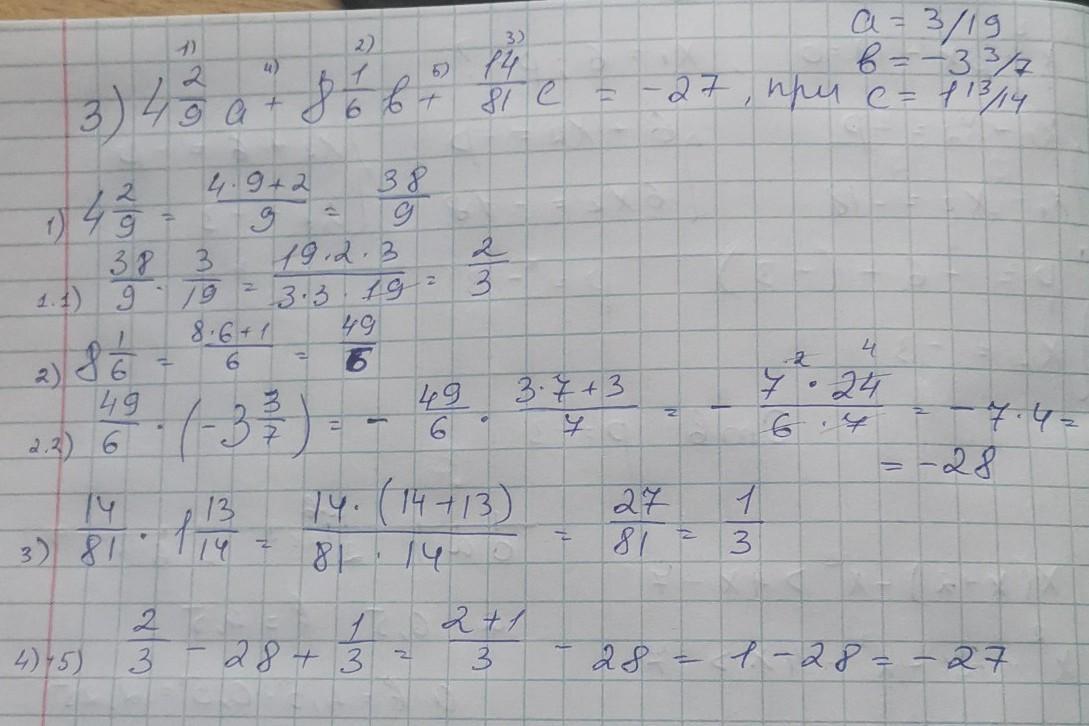 a = 3/19
в = -3 3/7
3) 4 2/9 a + 8 1/6 в + 14/81 c = -27, при c = 1 13/14
1) 2) 3) 4) 5)
1) 4 2/9 = (4·9+2)/9 = 38/9
1.1) 38/9 · 3/19 = (19·2·3)/(3·3·19) = 2/3
2) 8 1/6 = (8·6+1)/6 = 49/6
2.2) 49/6 · (-3 3/7) = - 49/6 · (3·7+3)/7 = - (7² · 24)/(6 · 7) = -7·4 =
4
= -28
3) 14/81 · 1 13/14 = (14·(14+13))/(81 · 14) = 27/81 = 1/3
4)+5) 2/3 - 28 + 1/3 = (2+1)/3 - 28 = 1 - 28 = -27